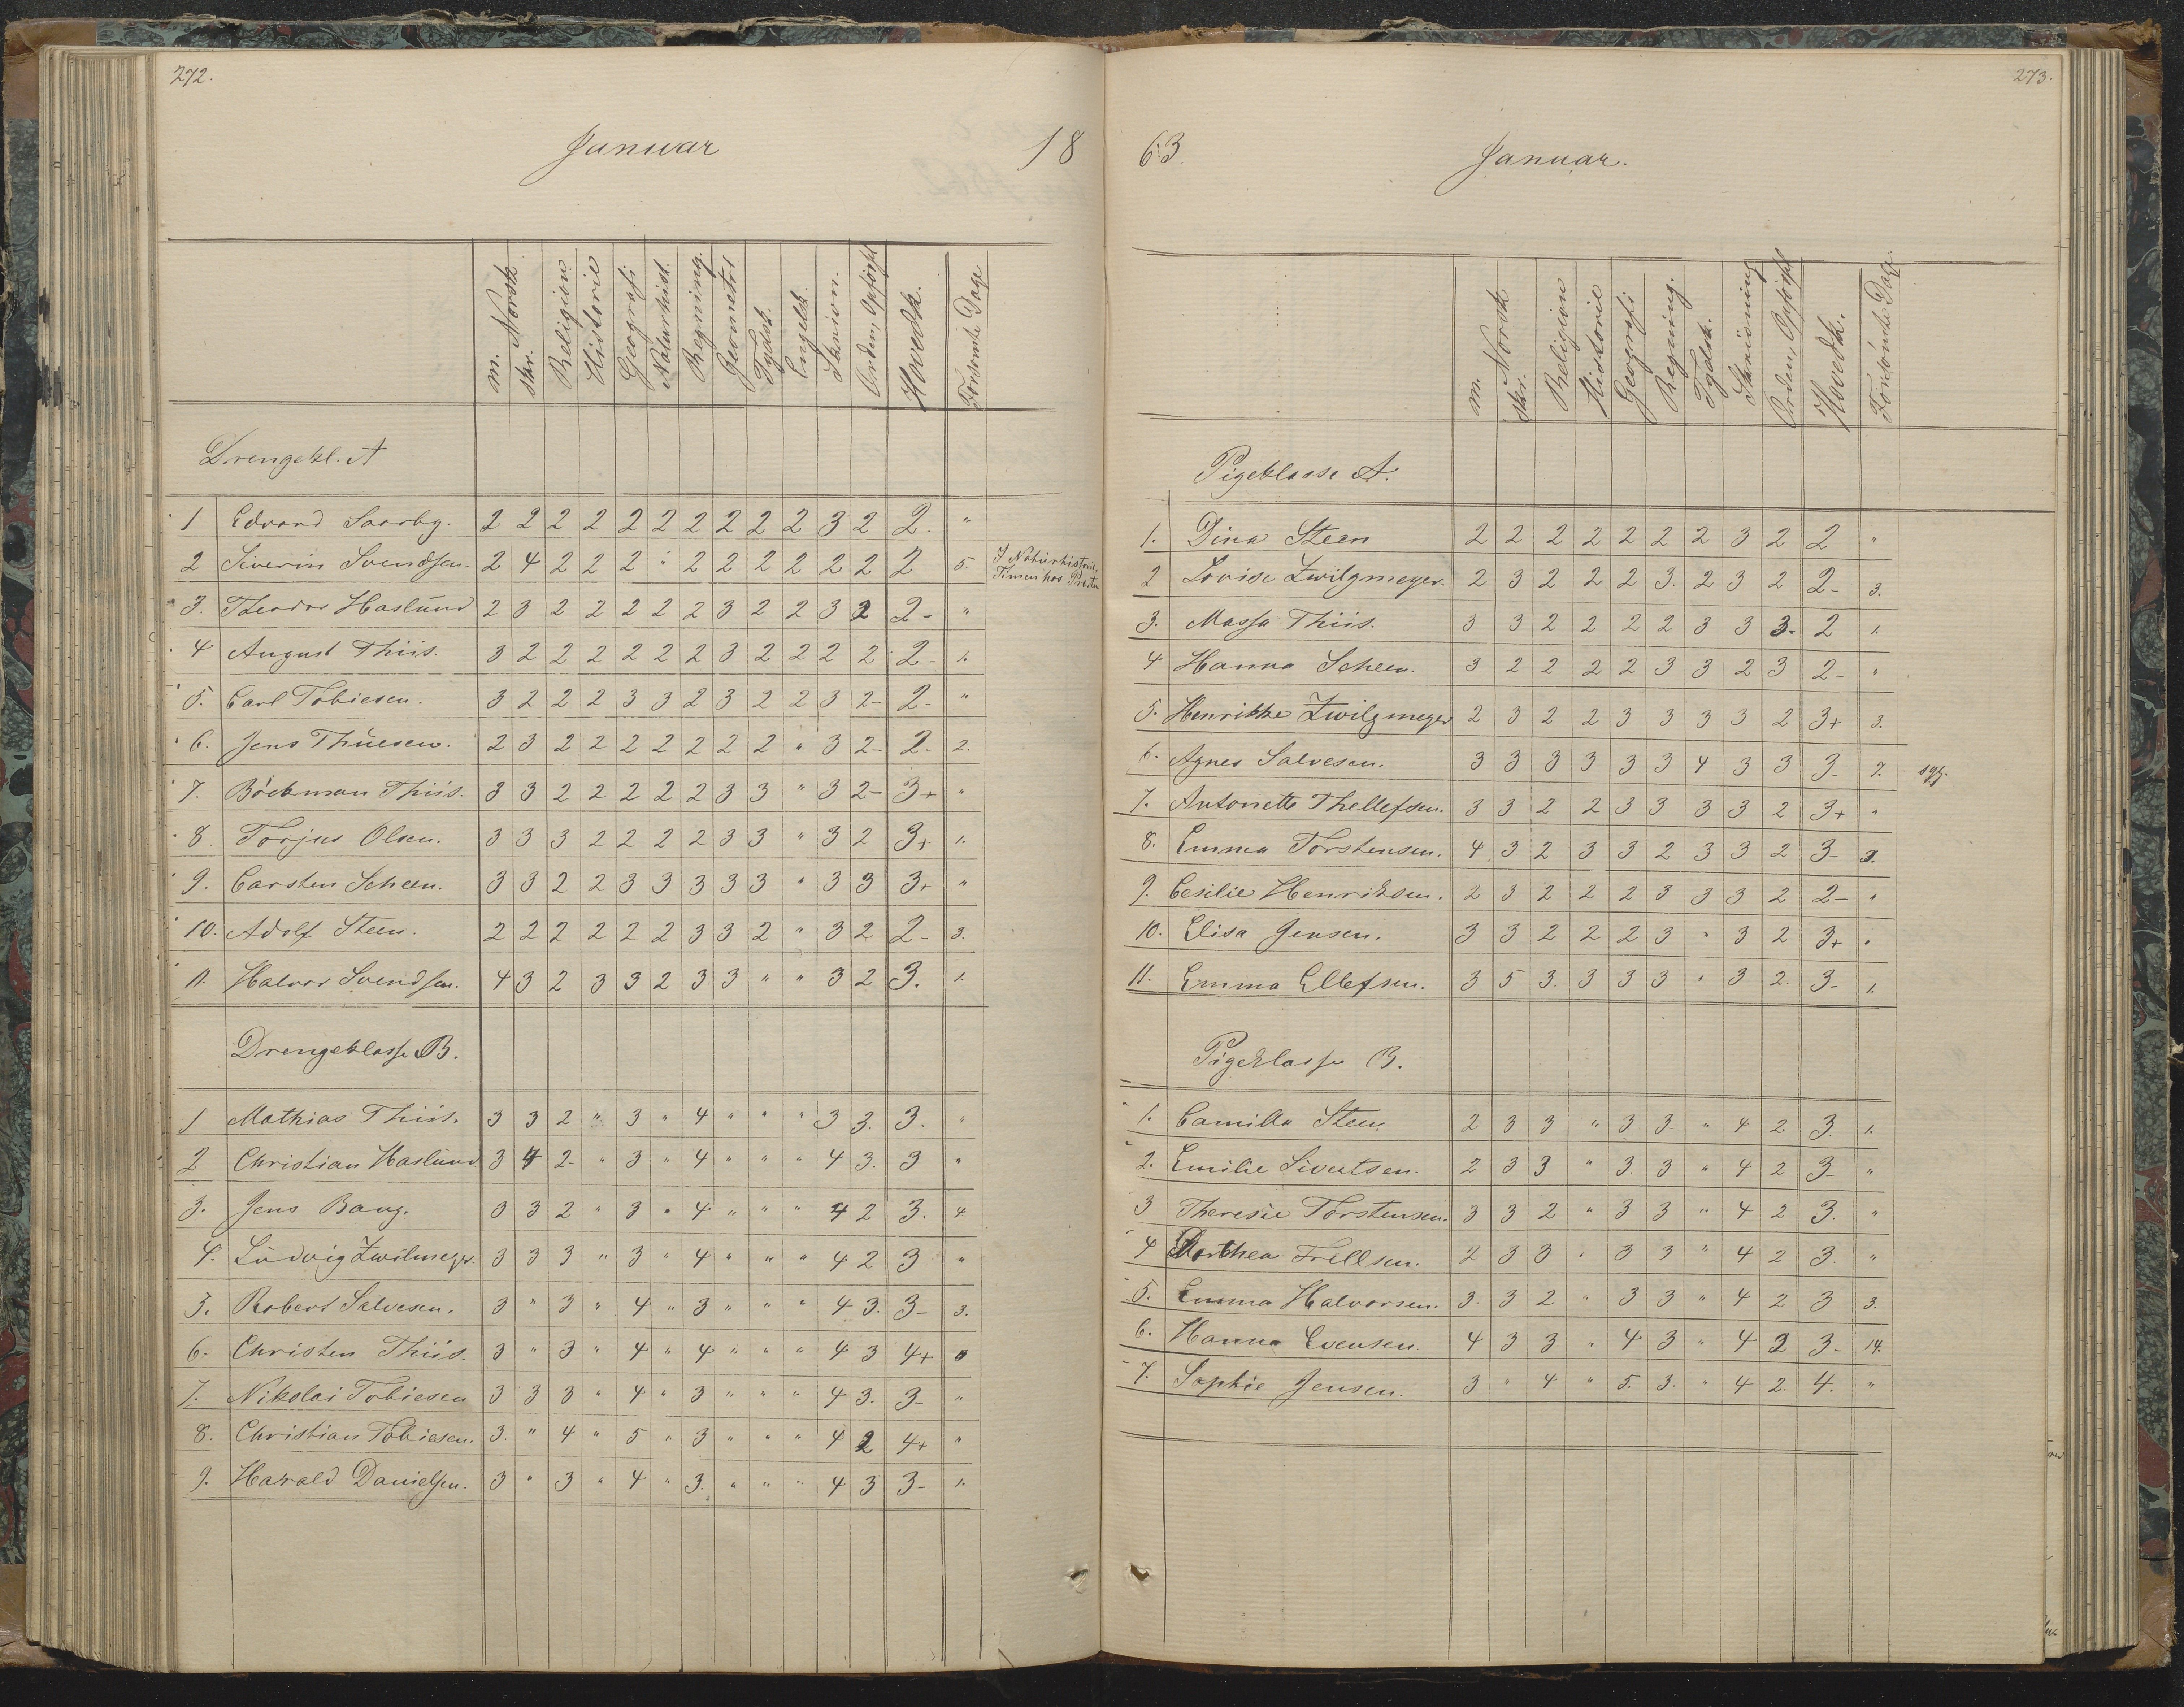 272.
Januar 18
m. Norsk skr. Religion Historie Geografi Naturhist. Regning. Geometri Tydsk. Engelsk. Skrivn. Orden, Opførsel Hovedk. Forsømte Dage
Drengekl. A
1 Edvard Saarby. 2 2 2 2 2 2 2 2 2 2 3 2 2. "
2 Siverin Svendsen. 2 4 2 2 2 " 2 2 2 2 2 2 2 5. I Naturhistorie
Timen hos Præsten
3. Theodor Haslund 2 3 2 2 2 2 2 3 2 2 3 2 2- "
4 August Thiis. 3 2 2 2 2 2 2 3 2 2 2 2 2- 1.
5. Carl Tobiesen. 3 2 2 2 3 3 2 3 2 2 3 2- 2- "
6. Jens Thuesen. 2 3 2 2 2 2 2 2 2 " 3 2- 2- 2.
7. Böckman Thiis. 3 3 2 2 2 2 2 3 3 " 3 2- 3+ "
8. Torjus Olsen. 3 3 3 2 2 2 2 3 3 " 3 2 3+ 1.
9. Carsten Scheen. 3 3 2 2 3 3 3 3 3 " 3 3 3+ "
10. Adolf Steen. 2 2 2 2 2 2 3 3 2 " 3 2 2- 3.
11. Halvor Svendsen. 4 3 2 3 3 2 3 3 " " 3 2 3. 1.
Drengeklasse B.
1 Mathias Thiis. 3 3 2 " 3 " 4 " " " 3 3. 3. "
2 Christian Haslund 3 4 2- " 3 " 4 " " " 4 3. 3 "
3. Jens Bang. 3 3 2 " 3 " 4 " " " 4 2 3. 4.
4. Ludvig Zwilmeyer. 3 3 3 " 3 " 4 " " " 4 2 3 "
5. Robert Salvesen. 3 " 3 " 4 " 3 " " " 4 3. 3- 3.
6. Christen Thiis. 3 " 3 " 4 " 4 " " " 4 3 4+
7. Nikolai Tobiesen 3 3 3 " 4 " 3 " " " 4 3. 3- "
8. Christian Tobiesen. 3. " 4 " 5 " 3 " " " 4 2 4+ "
9. Harald Danielsen. 3 " 3 " 4 " 3. " " " 4 3 3- 1.
273.
63. Januar.
m. Norsk skr. Religion Historie Geografi Regning. Tydsk. Skrivning Orden, Opførsel Hovedk. Forsømte Dage.
Pigeklasse A.
1. Dina Steen 2 2 2 2 2 2 2 3 2 2 "
2 Lovise Zwilgmeyer. 2 3 2 2 2 3. 2 3 2 2- 3.
3. Massa Thiis. 3 3 2 2 2 2 3 3 3- 2 1.
4 Hanna Scheen. 3 2 2 2 2 3 3 2 3 2- "
5. Henrikke Zwilgmeyer 2 3 2 2 3 3 3 3 2 3+ 3.
6. Agnes Salvesen. 3 3 3 3 3 3 4 3 3 3- 7. syg.
7. Antonette Thellefsen. 3 3 2 2 3 3 3 3 2 3+ "
8. Emma Torstensen. 4 3 2 3 3 2 3 3 2 3- 3.
9. Cesilie Henriksen. 2 3 2 2 2 3 3 3 2 2- "
10. Elisa Jensen. 3 3 2 2 2 3 " 3 2 3+ "
11. Emma Ellefsen. 3 5 3. 3 3 3 " 3 2. 3- 1.
Pigeklasse B.
1. Camilla Steen. 2 3 3 " 3 3- " 4 2 3. 1.
2. Emilie Sivertsen. 2 3 3 " 3. 3 " 4 2 3- "
3 Theresie Torstensen. 3 3 2 " 3 3 " 4 2 3. "
4 Dorthea Trellsen. 2 3 3 " 3 3 " 4 2 3. "
5. Emma Halvorsen. 3. 3 2 " 3 3 " 4 2 3 3.
6. Hanna Evensen. 4 3 3 " 4 3 " 4 3 3- 14.
7. Sophie Jensen. 3 " 4 " 5. 3. " 4 2. 4. "